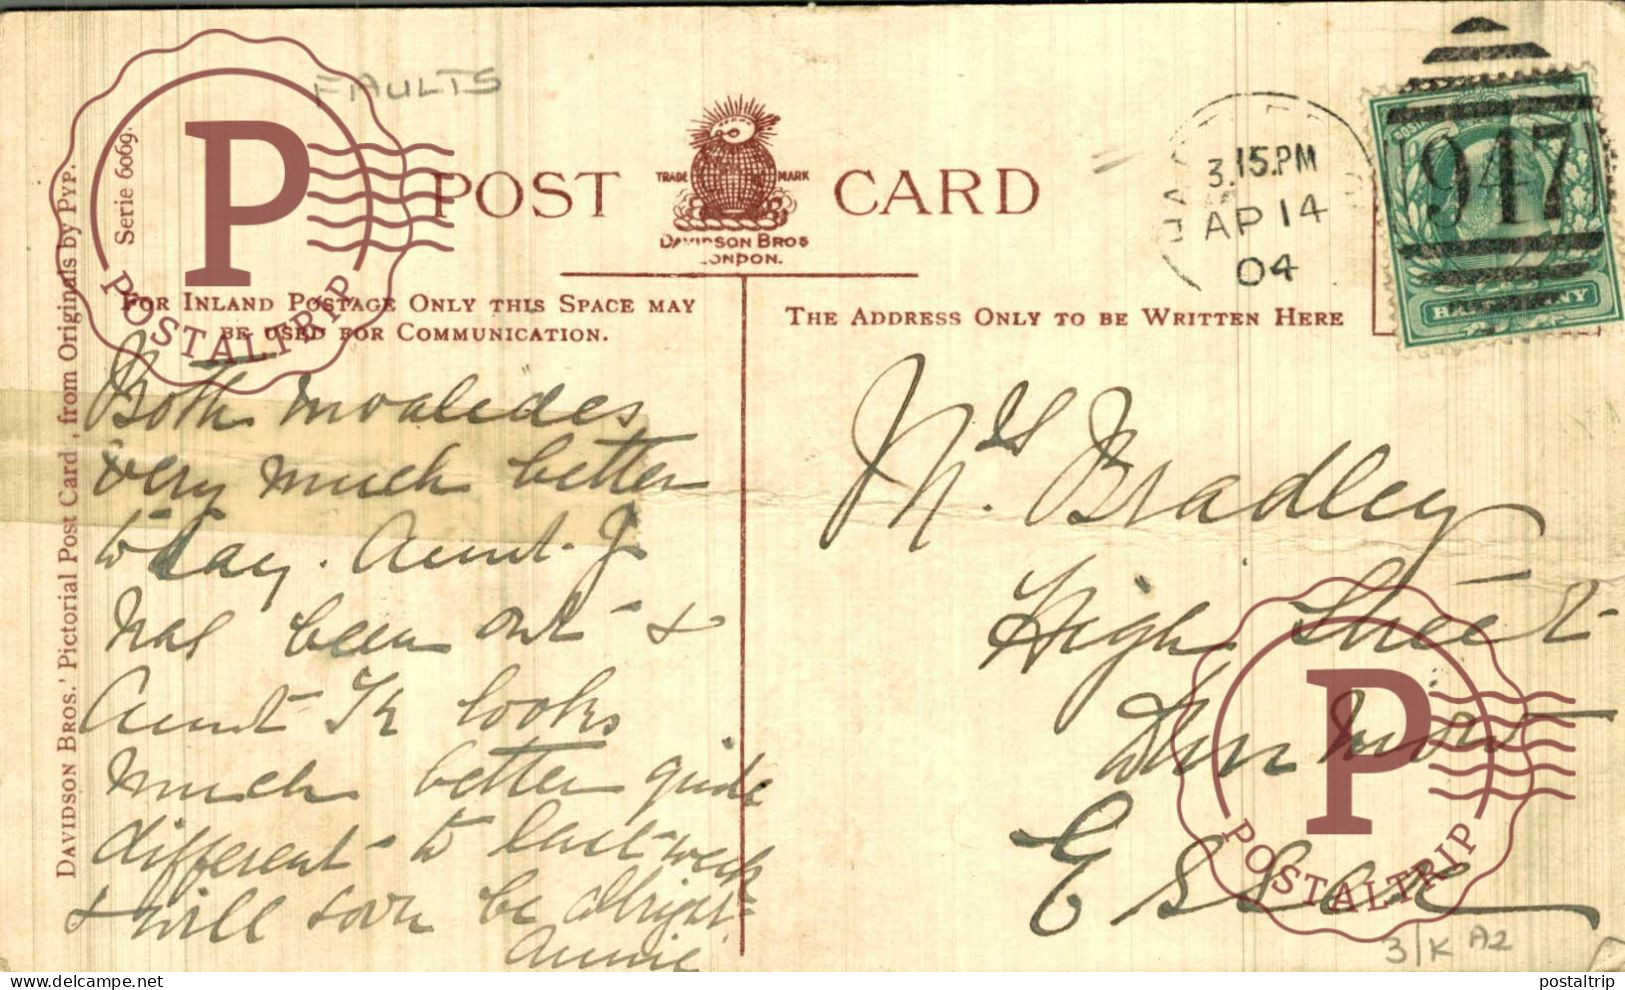 FAULTS
Serie 6069.
POST CARD
TRADE MARK
DAVIDSON BROS
LONDON.
3.15.PM
AP 14
04
947
HALFPENNY
FOR INLAND POSTAGE ONLY THIS SPACE MAY
BE USED FOR COMMUNICATION.
THE ADDRESS ONLY TO BE WRITTEN HERE
DAVIDSON BROS.' Pictorial Post Card, from Originals by PYP.
Both invalides
very much better
to day. Aunt J
has been out &
Aunt K looks
much better quide
different to last week
& will soon be allright
Annie
Mrs. Bradley
High Street
Dunmow
Essex
3/K A2
P
POSTALTRIP
P
POSTALTRIP
delcampe.net
postaltrip